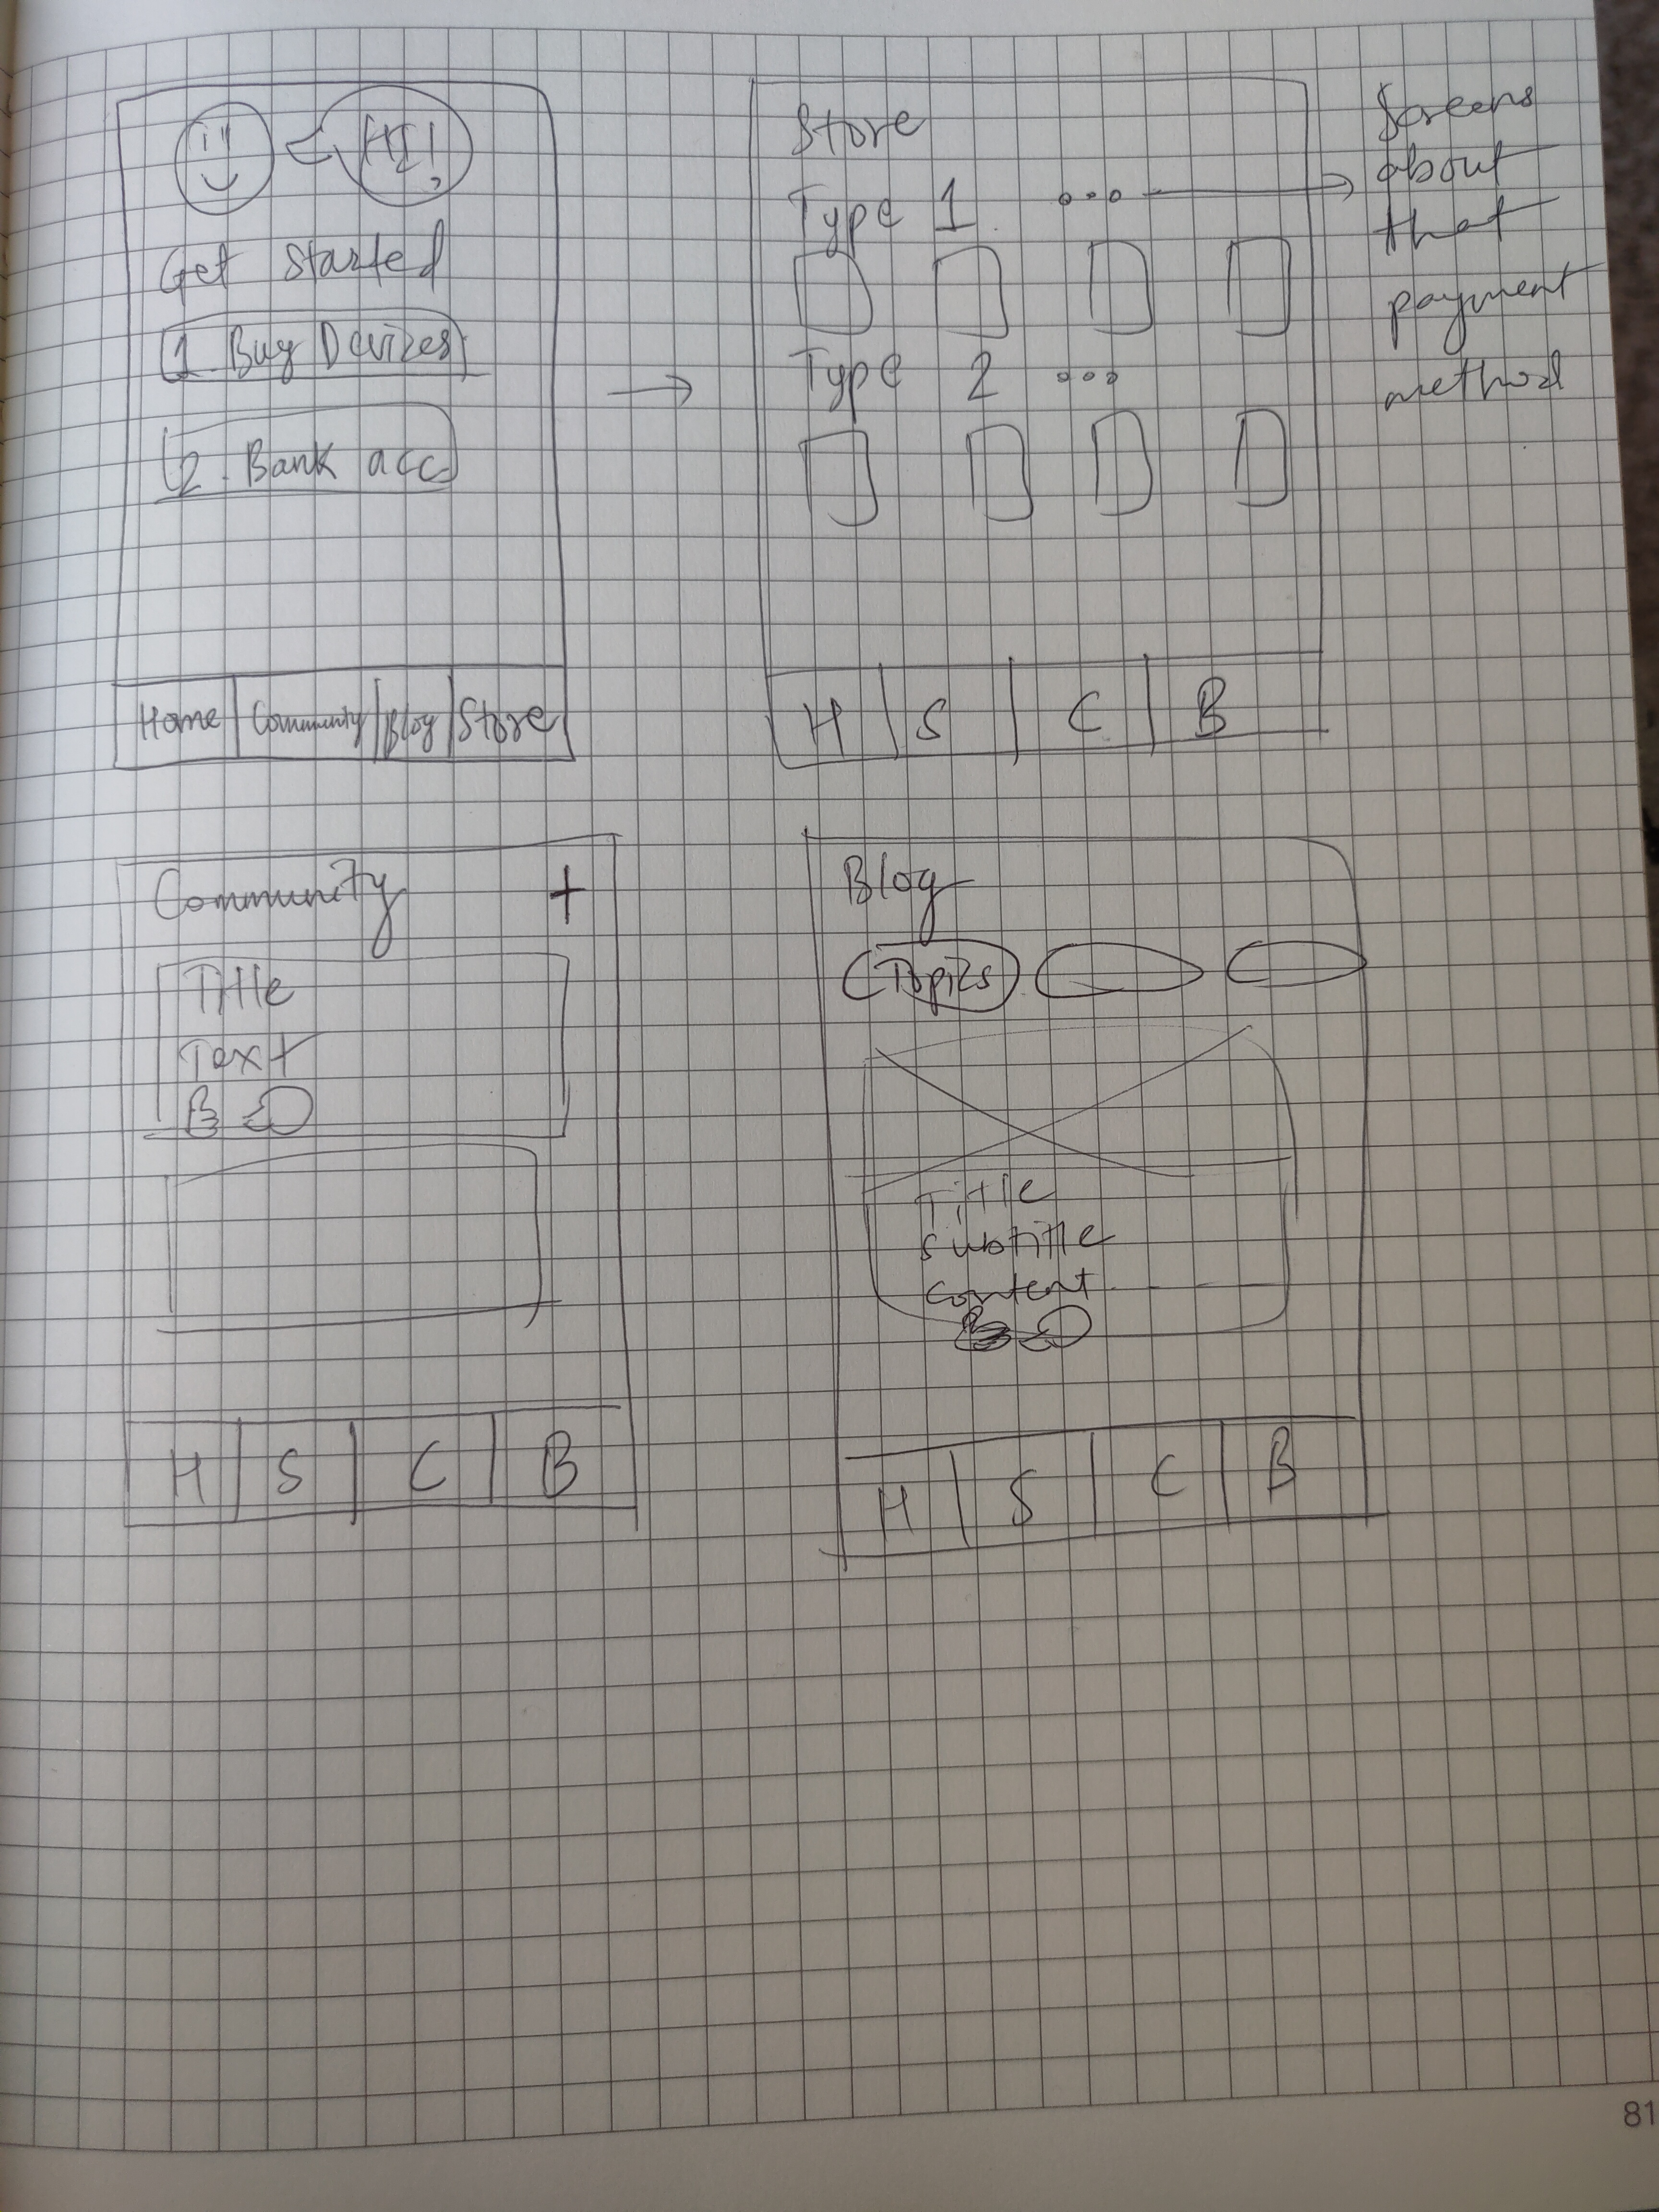 Hi!
Get Started
1. Buy Devices
2. Bank acc
Home Community Blog Store
Store
Type 1 ...
Type 2 ...
H S C B
Screens
about
that
payment
method
Community +
Title
Text
H S C B
Blog
Topics
Title
subtitle
content
H S C B
81